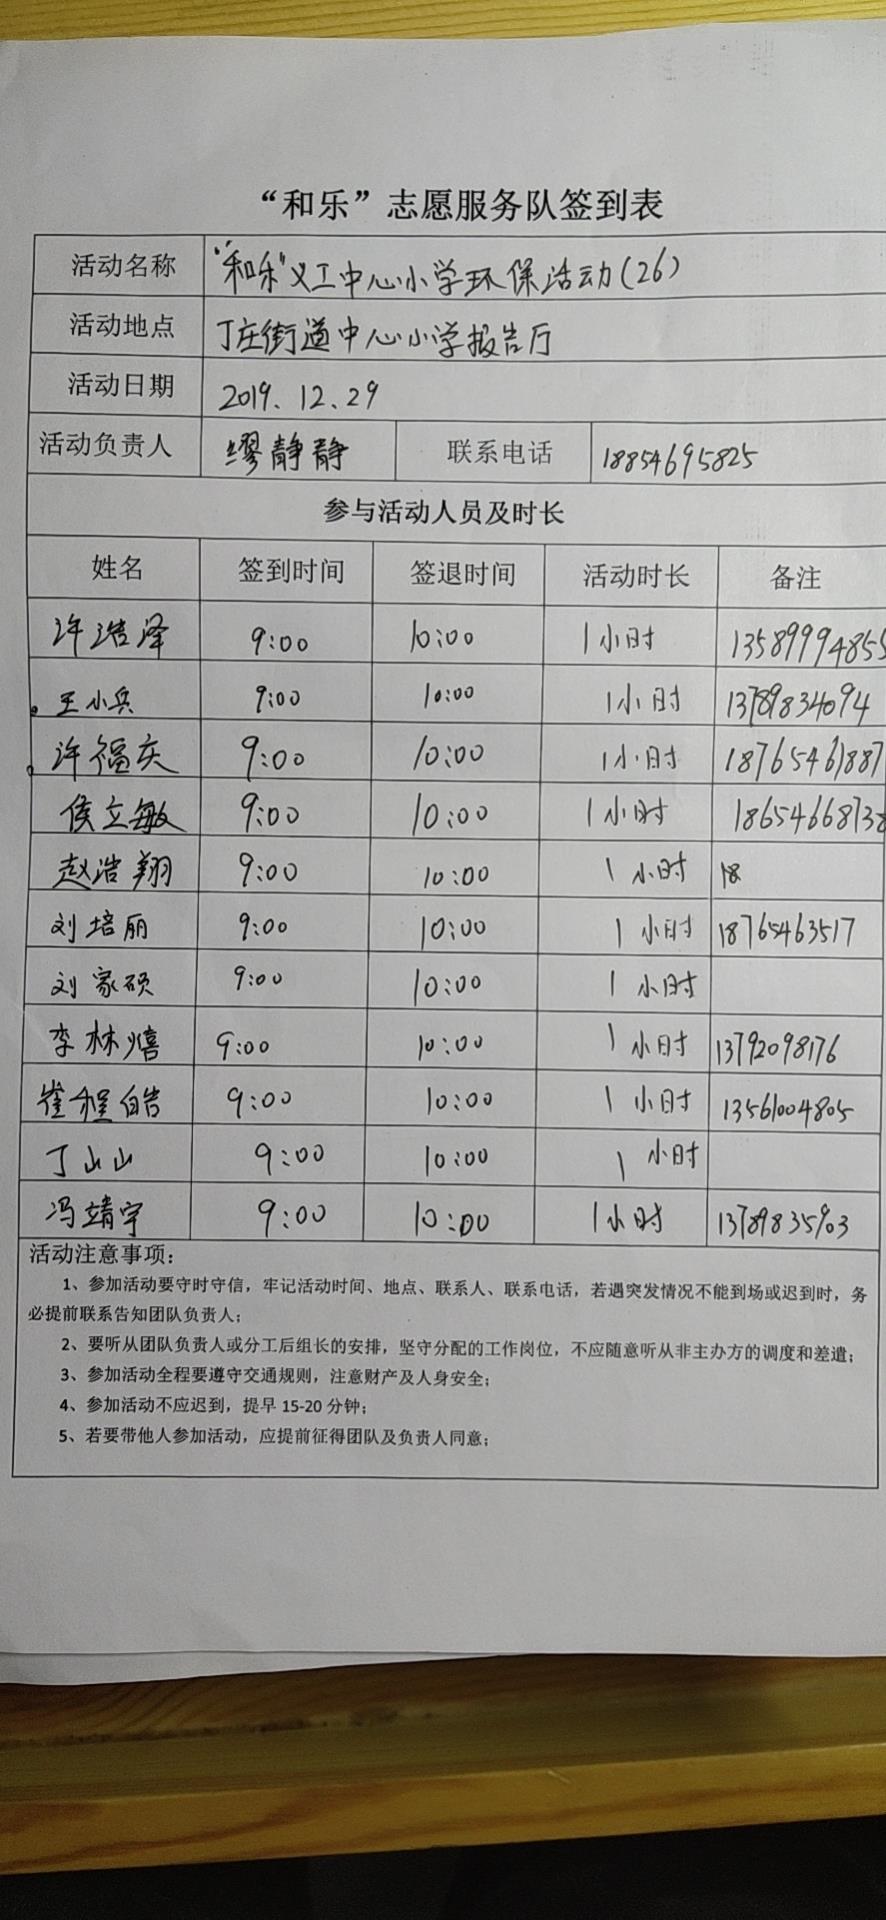 “和乐”志愿服务队签到表
活动名称 “和乐”义工中心小学环保活动(26)
活动地点 丁庄街道中心小学报告厅
活动日期 2019.12.29
活动负责人 缪静静 联系电话 18854695825
参与活动人员及时长
姓名 签到时间 签退时间 活动时长 备注
许浩泽 9:00 10:00 1小时 13589994855
王小兵 9:00 10:00 1小时 13789834094
许福庆 9:00 10:00 1小时 18765461887
侯立敏 9:00 10:00 1小时 18654668738
赵浩翔 9:00 10:00 1小时 18
刘培丽 9:00 10:00 1小时 18765463517
刘家硕 9:00 10:00 1小时
李林熺 9:00 10:00 1小时 13792098176
崔程皓 9:00 10:00 1小时 13561004805
丁山山 9:00 10:00 1小时
冯靖宇 9:00 10:00 1小时 13789835903
活动注意事项：
1、参加活动要守时守信，牢记活动时间、地点、联系人、联系电话，若遇突发情况不能到场或迟到时，务
必提前联系告知团队负责人；
2、要听从团队负责人或分工后组长的安排，坚守分配的工作岗位，不应随意听从非主办方的调度和差遣；
3、参加活动全程要遵守交通规则，注意财产及人身安全；
4、参加活动不应迟到，提早 15-20 分钟；
5、若要带他人参加活动，应提前征得团队及负责人同意；